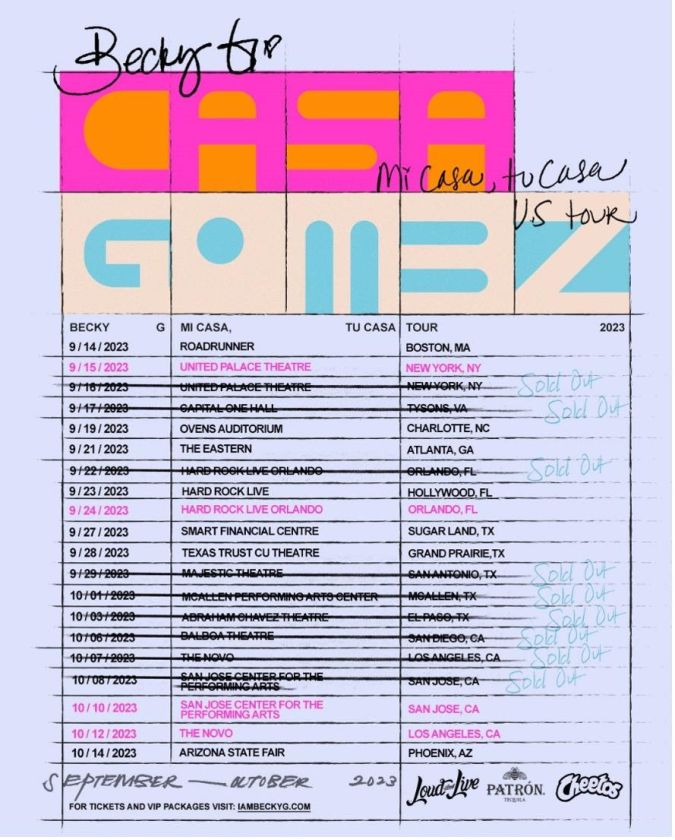 Becky G
CASA
Mi Casa, tu Casa
U.S tour
GOMEZ
BECKY G MI CASA, TU CASA TOUR 2023
9/14/2023 ROADRUNNER BOSTON, MA
9/15/2023 UNITED PALACE THEATRE NEW YORK, NY
9/16/2023 UNITED PALACE THEATRE NEW YORK, NY Sold Out
9/17/2023 CAPITAL ONE HALL TYSONS, VA Sold Out
9/19/2023 OVENS AUDITORIUM CHARLOTTE, NC
9/21/2023 THE EASTERN ATLANTA, GA
9/22/2023 HARD ROCK LIVE ORLANDO ORLANDO, FL Sold Out
9/23/2023 HARD ROCK LIVE HOLLYWOOD, FL
9/24/2023 HARD ROCK LIVE ORLANDO ORLANDO, FL
9/27/2023 SMART FINANCIAL CENTRE SUGAR LAND, TX
9/28/2023 TEXAS TRUST CU THEATRE GRAND PRAIRIE,TX
9/29/2023 MAJESTIC THEATRE SAN ANTONIO, TX Sold Out
10/01/2023 MCALLEN PERFORMING ARTS CENTER MCALLEN, TX Sold Out
10/03/2023 ABRAHAM CHAVEZ THEATRE EL PASO, TX Sold Out
10/06/2023 BALBOA THEATRE SAN DIEGO, CA Sold Out
10/07/2023 THE NOVO LOS ANGELES, CA Sold Out
10/08/2023 SAN JOSE CENTER FOR THE
PERFORMING ARTS SAN JOSE, CA Sold Out
10/10/2023 SAN JOSE CENTER FOR THE
PERFORMING ARTS SAN JOSE, CA
10/12/2023 THE NOVO LOS ANGELES, CA
10/14/2023 ARIZONA STATE FAIR PHOENIX, AZ
SEPTEMBER — OCTOBER 2023
FOR TICKETS AND VIP PACKAGES VISIT: IAMBECKYG.COM
Loud and Live
PATRÓN.
TEQUILA
Cheetos